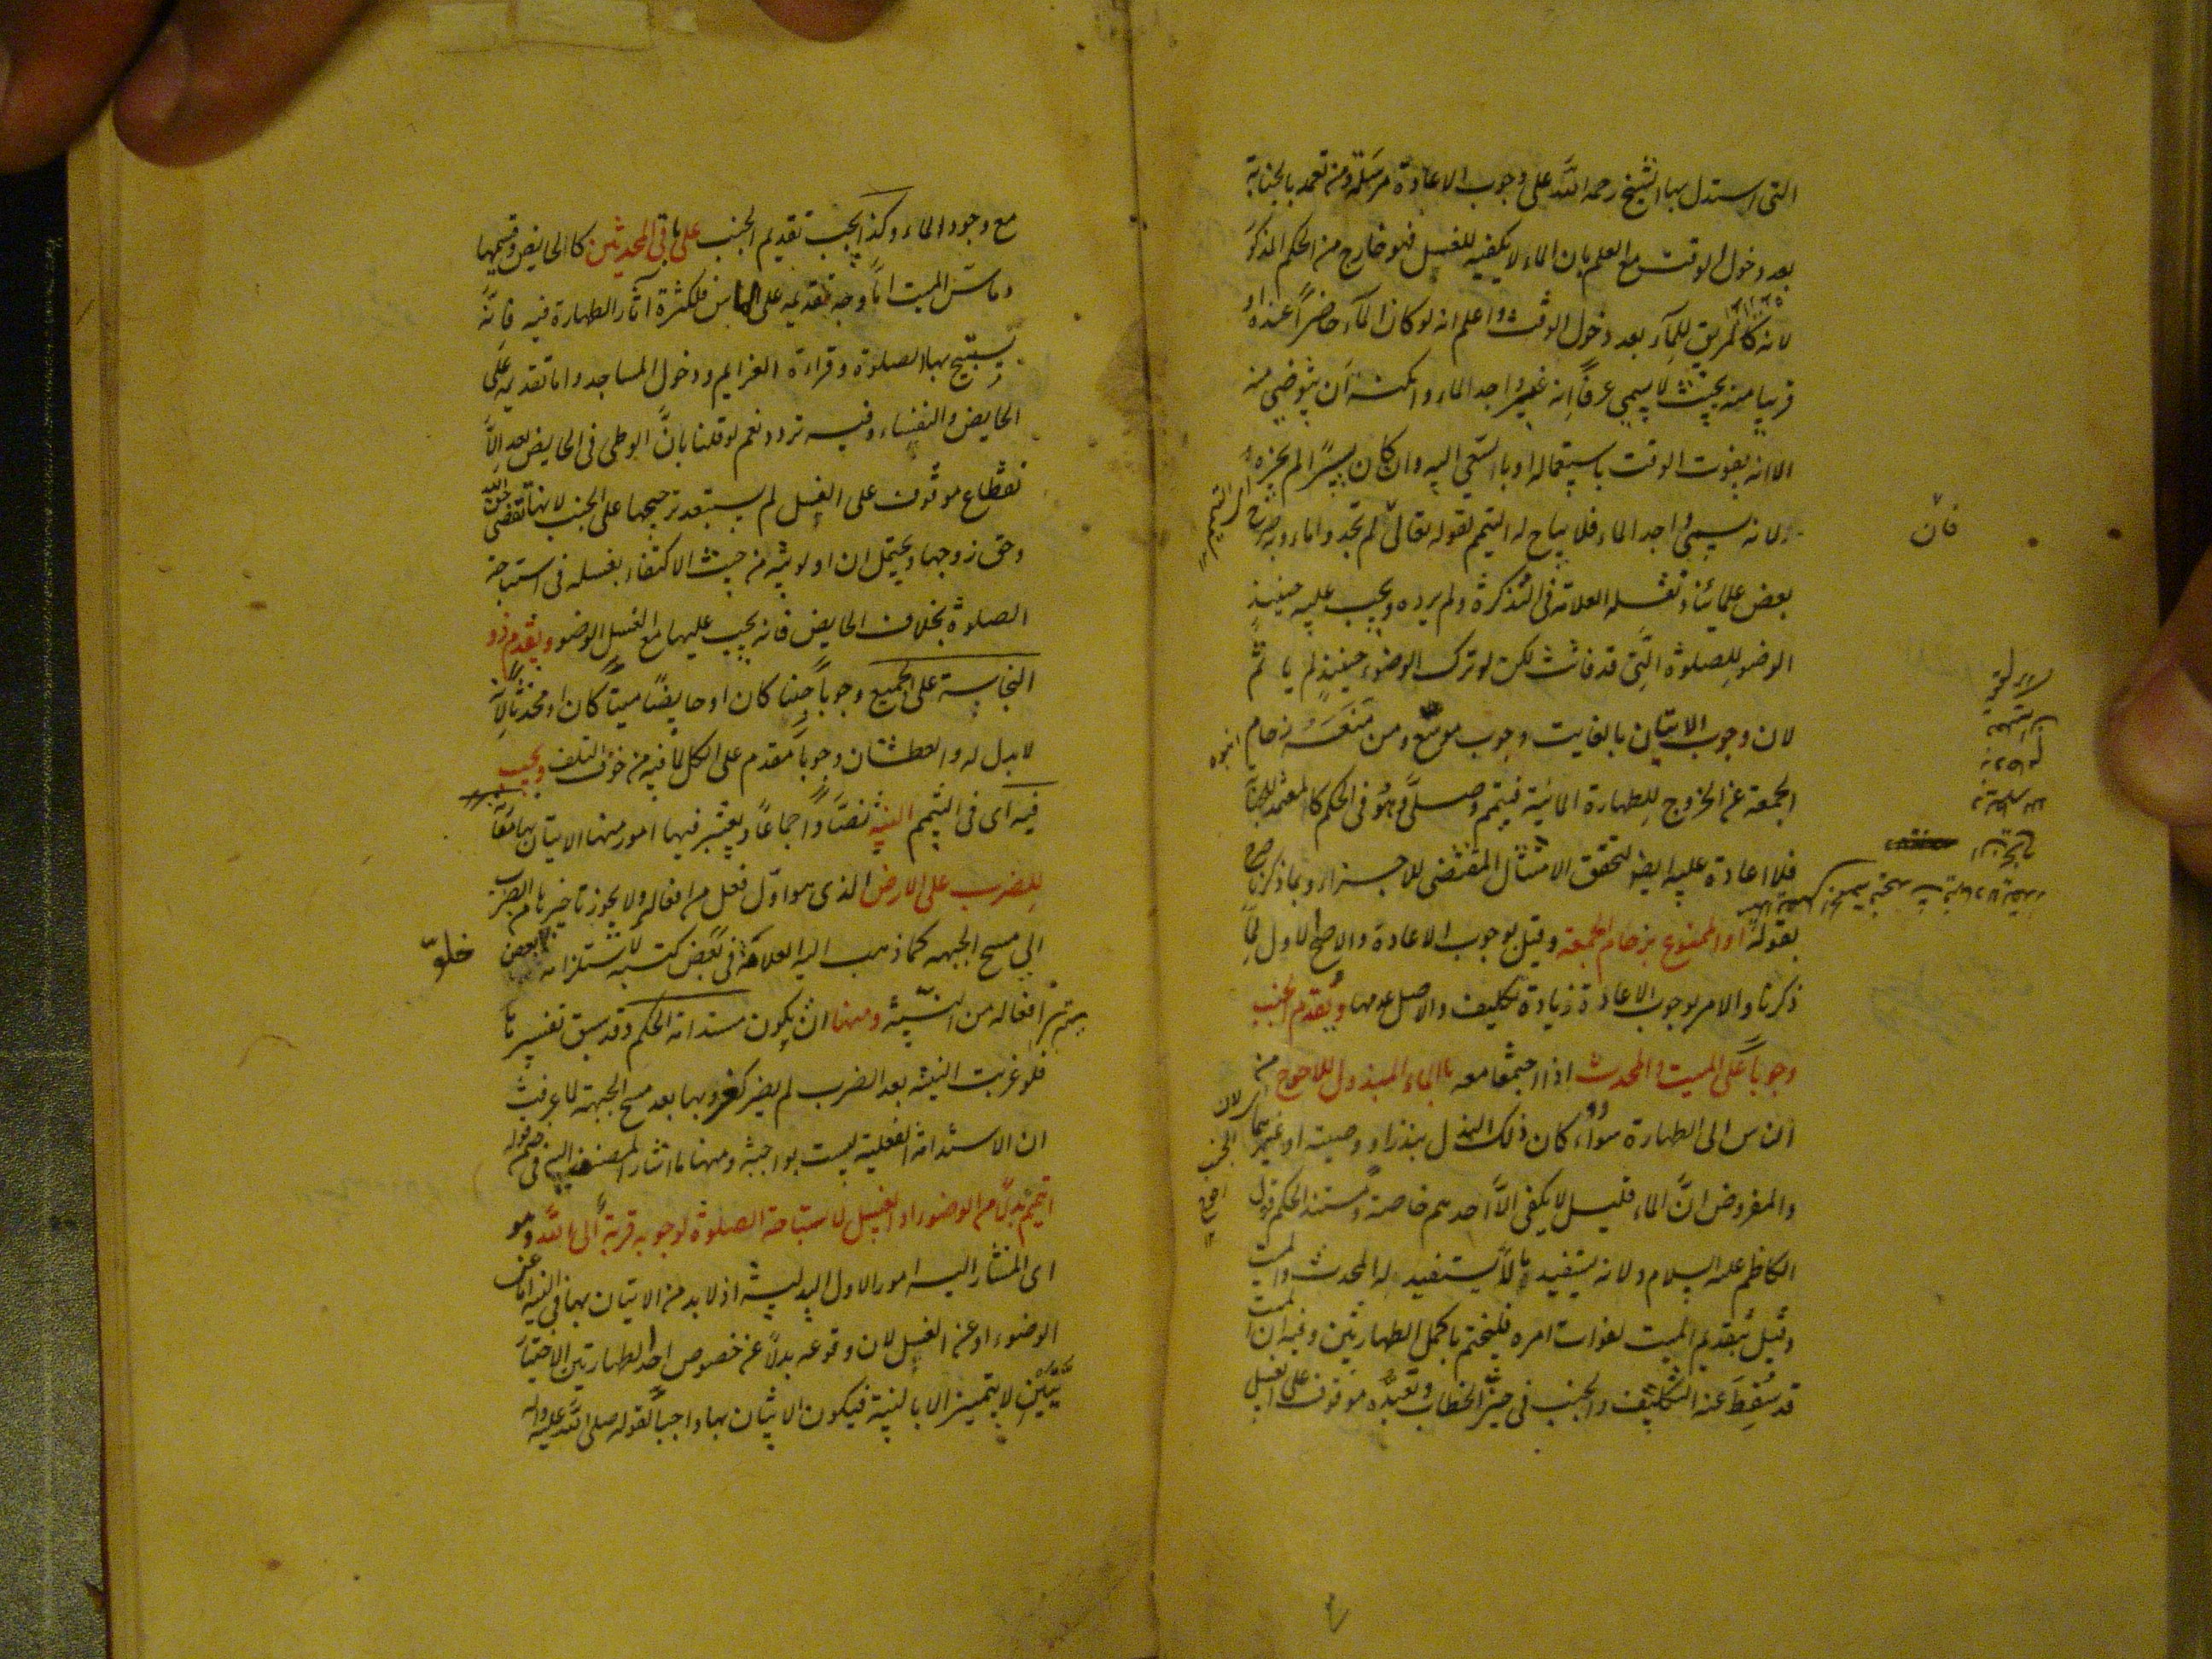 التى استدل بها الشيخ رحمه الله على وجوب الاعادة مرسلة ومن تعمد بالجنابة
بعد دخول الوقت مع العلم بان الماء لا يكفيه للغسل فهو خارج من الحكم المذكور
لانه كالمريق للماء بعد دخول الوقت واعلم انه لو كان الماء حاضرا عنده او
قريبا منه بحيث لا يسمى عرفا انه غير واجد الماء وامكنه ان يتوضى منه
الا انه يفوت الوقت باستعماله او بالسعى اليه وان كان يسيرا لم يجزه
لانه يسمى واجد الماء فلا يباح له التيمم لقوله تعالى لم تجدوا ماء وبه صرح
فان
بعض علمائنا ونقله العلامة فى التذكرة ولم يرده ويجب عليه حينئذ
الوضو للصلوة التى قد فاتت لكن لو ترك الوضوء حينئذ لم ياثم
لان وجوب الاتيان بالفايت وجوب موسع ومن منعه زحام
الجمعة عن الخروج للطهارة المائية فيتمم وصلى وهو فى الحكم كالمعتمد للجنابة
فلا اعادة عليه ايضا لتحقق الامتثال المقتضى للاجزاء وبما ذكرنا صرح
بقوله او الممنوع بزحام الجمعة وقيل بوجوب الاعادة والاصح الاول لما
ذكرنا والامر بوجوب الاعادة زيادة تكليف والاصل عدمها ويقدم الجنب
وجوبا على الميت والمحدث اذا اجتمعا معه بالماء المبذول للاحوج من
الناس الى الطهارة سواء كان ذلك البذل بنذر او وصية او غيرهما
والمفروض ان الماء قليل لا يكفى الا احدهم خاصة ومستند الحكم قول
الكاظم عليه السلام ولانه يستفيد ما لا يستفيد له المحدث والميت
وقيل بتقديم الميت لفوات امره فليختم باكمل الطهارتين وفيه ان الميت
قد سقط عنه التكليف والجنب فى حيز الخطاب وتعبده موقوف على الغسل
مع وجود الماء وكذا يجب تقديم الجنب على باقى المحدثين كالحايض وقسيميها
وماس الميت اما وجه تقديمه على الماس فلكثرة آثار الطهارة فيه فانه
يستبيح بها الصلوة وقراءة العزايم ودخول المساجد واما تقديمه على
الحايض والنفساء وفيه تردد نعم لو قلنا بان الوطى فى الحايض بعد الا
نقطاع موقوف على الغسل لم يستبعد ترجيحها على الجنب لانها تقضى حق الله
وحق زوجها ويحتمل ان اولويته من حيث الاكتفاء بغسله فى استباحة
الصلوة بخلاف الحايض فانه يجب عليها مع الغسل الوضو ويقدم ذو
النجاسة على الجميع وجوبا جنبا كان او حايضا ميتا كان او محدثا لانه
لا بدل له والعطشان وجوبا مقدم على الكل لما فيه من خوف التلف ويجب
فيه اى فى التيمم النية نصا واجماعا ويعتبر فيها امور منها الاتيان بها مقارنة
للضرب على الارض الذى هو اول فعل من افعاله ولا يجوز تاخيرها من الضرب
الى مسح الجبهة كما ذهب اليه العلامة فى بعض كتبه لاستلزامه خلو بعض
افعاله من النية ومنها ان يكون مستدامة الحكم وقد سبق تفسيرها
فلو غربت النية بعد الضرب لم يضر كغروبها بعد مسح الجبهة لما عرفت
ان الاستدامة الفعلية ليست بواجبة ومنها ما اشار المصنف اليه فى قوله
اتيمم بدلا من الوضوء او الغسل لاستباحة الصلوة لوجوبه قربة الى الله وهو
اى المشار اليه امور الاول البدلية اذ لا بد من الاتيان بها فى النية اما عن
الوضوء او عن الغسل لان وقوعه بدلا عن خصوص احد الطهارتين الاختيا
ريتين لا يتميز الا بالنية فيكون الاتيان بها واجبا لقوله صلى الله عليه واله